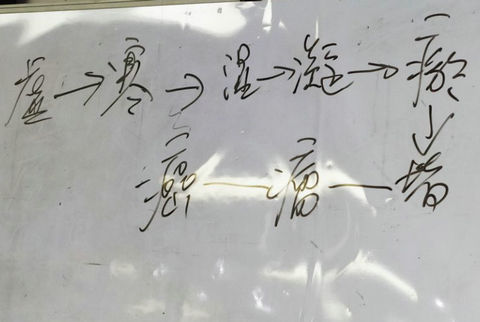 虚→寒→湿→凝→瘀
↓
癌—瘤—堵